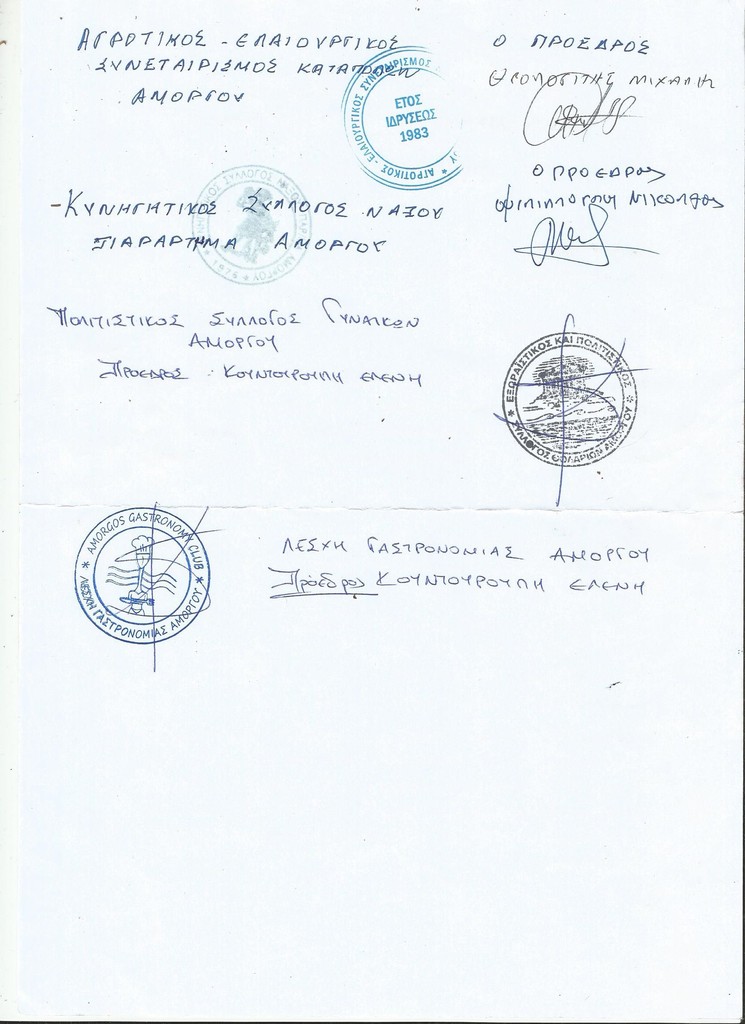 ΑΓΡΟΤΙΚΟΣ - ΕΛΑΙΟΥΡΓΙΚΟΣ
ΣΥΝΕΤΑΙΡΙΣΜΟΣ ΚΑΤΑΠΟΛΩΝ
ΑΜΟΡΓΟΥ
ΑΓΡΟΤΙΚΟΣ - ΕΛΑΙΟΥΡΓΙΚΟΣ ΣΥΝΕΤΑΙΡΙΣΜΟΣ
ΕΤΟΣ
ΙΔΡΥΣΕΩΣ
1983
Ο ΠΡΟΕΔΡΟΣ
ΜΙΧΑΛΗΣ
- ΚΥΝΗΓΗΤΙΚΟΣ ΣΥΛΛΟΓΟΣ ΝΑΞΟΥ
ΠΑΡΑΡΤΗΜΑ ΑΜΟΡΓΟΥ
ΣΥΛΛΟΓΟΣ ΝΑΞΟΥ ΠΑΡ. ΑΜΟΡΓΟΥ
* 1976 *
Ο ΠΡΟΕΔΡΟΣ
ΝΙΚΟΛΑΟΣ
ΠΟΛΙΤΙΣΤΙΚΟΣ ΣΥΛΛΟΓΟΣ ΓΥΝΑΙΚΩΝ
ΑΜΟΡΓΟΥ
ΠΡΟΕΔΡΟΣ : ΚΟΥΝΤΟΥΡΟΥΠΗ ΕΛΕΝΗ
* ΕΞΩΡΑΙΣΤΙΚΟΣ ΚΑΙ ΠΟΛΙΤΙΣΤΙΚΟΣ *
ΣΥΛΛΟΓΟΣ ΘΟΛΑΡΙΩΝ ΑΜΟΡΓΟΥ
AMORGOS GASTRONOMY CLUB
* ΛΕΣΧΗ ΓΑΣΤΡΟΝΟΜΙΑΣ ΑΜΟΡΓΟΥ *
ΛΕΣΧΗ ΓΑΣΤΡΟΝΟΜΙΑΣ ΑΜΟΡΓΟΥ
Πρόεδρος ΚΟΥΝΤΟΥΡΟΥΠΗ ΕΛΕΝΗ